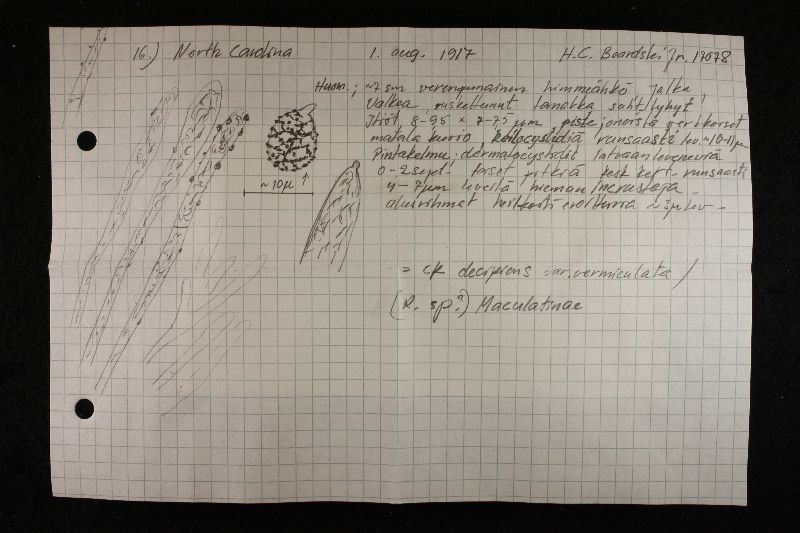 16.) North Carolina 1. aug. 1917 H.C. Beardslei Jr. 17078
Huom.; ~7 sm verenpunainen himmeähkö jalka
Valkea, ruskettunut tanakka suht. lyhyt!
Itiöt 8-9,5 × 7-7,5 µm piste jonoista
matala kuvio runsaasti lev. ~10-11µ
Pintakelmu: dermatocystidit latvaan leveneviä
0-2 sept. toiset pitkiä kesk. kert. runsaasti
4-7µm leveitä hieman incrusteja
alusrihmat heikosti erottuvia ~3µ lev -
~10µ
= cf decipiens var. vermiculata /
(R. sp.?) Maculatinae